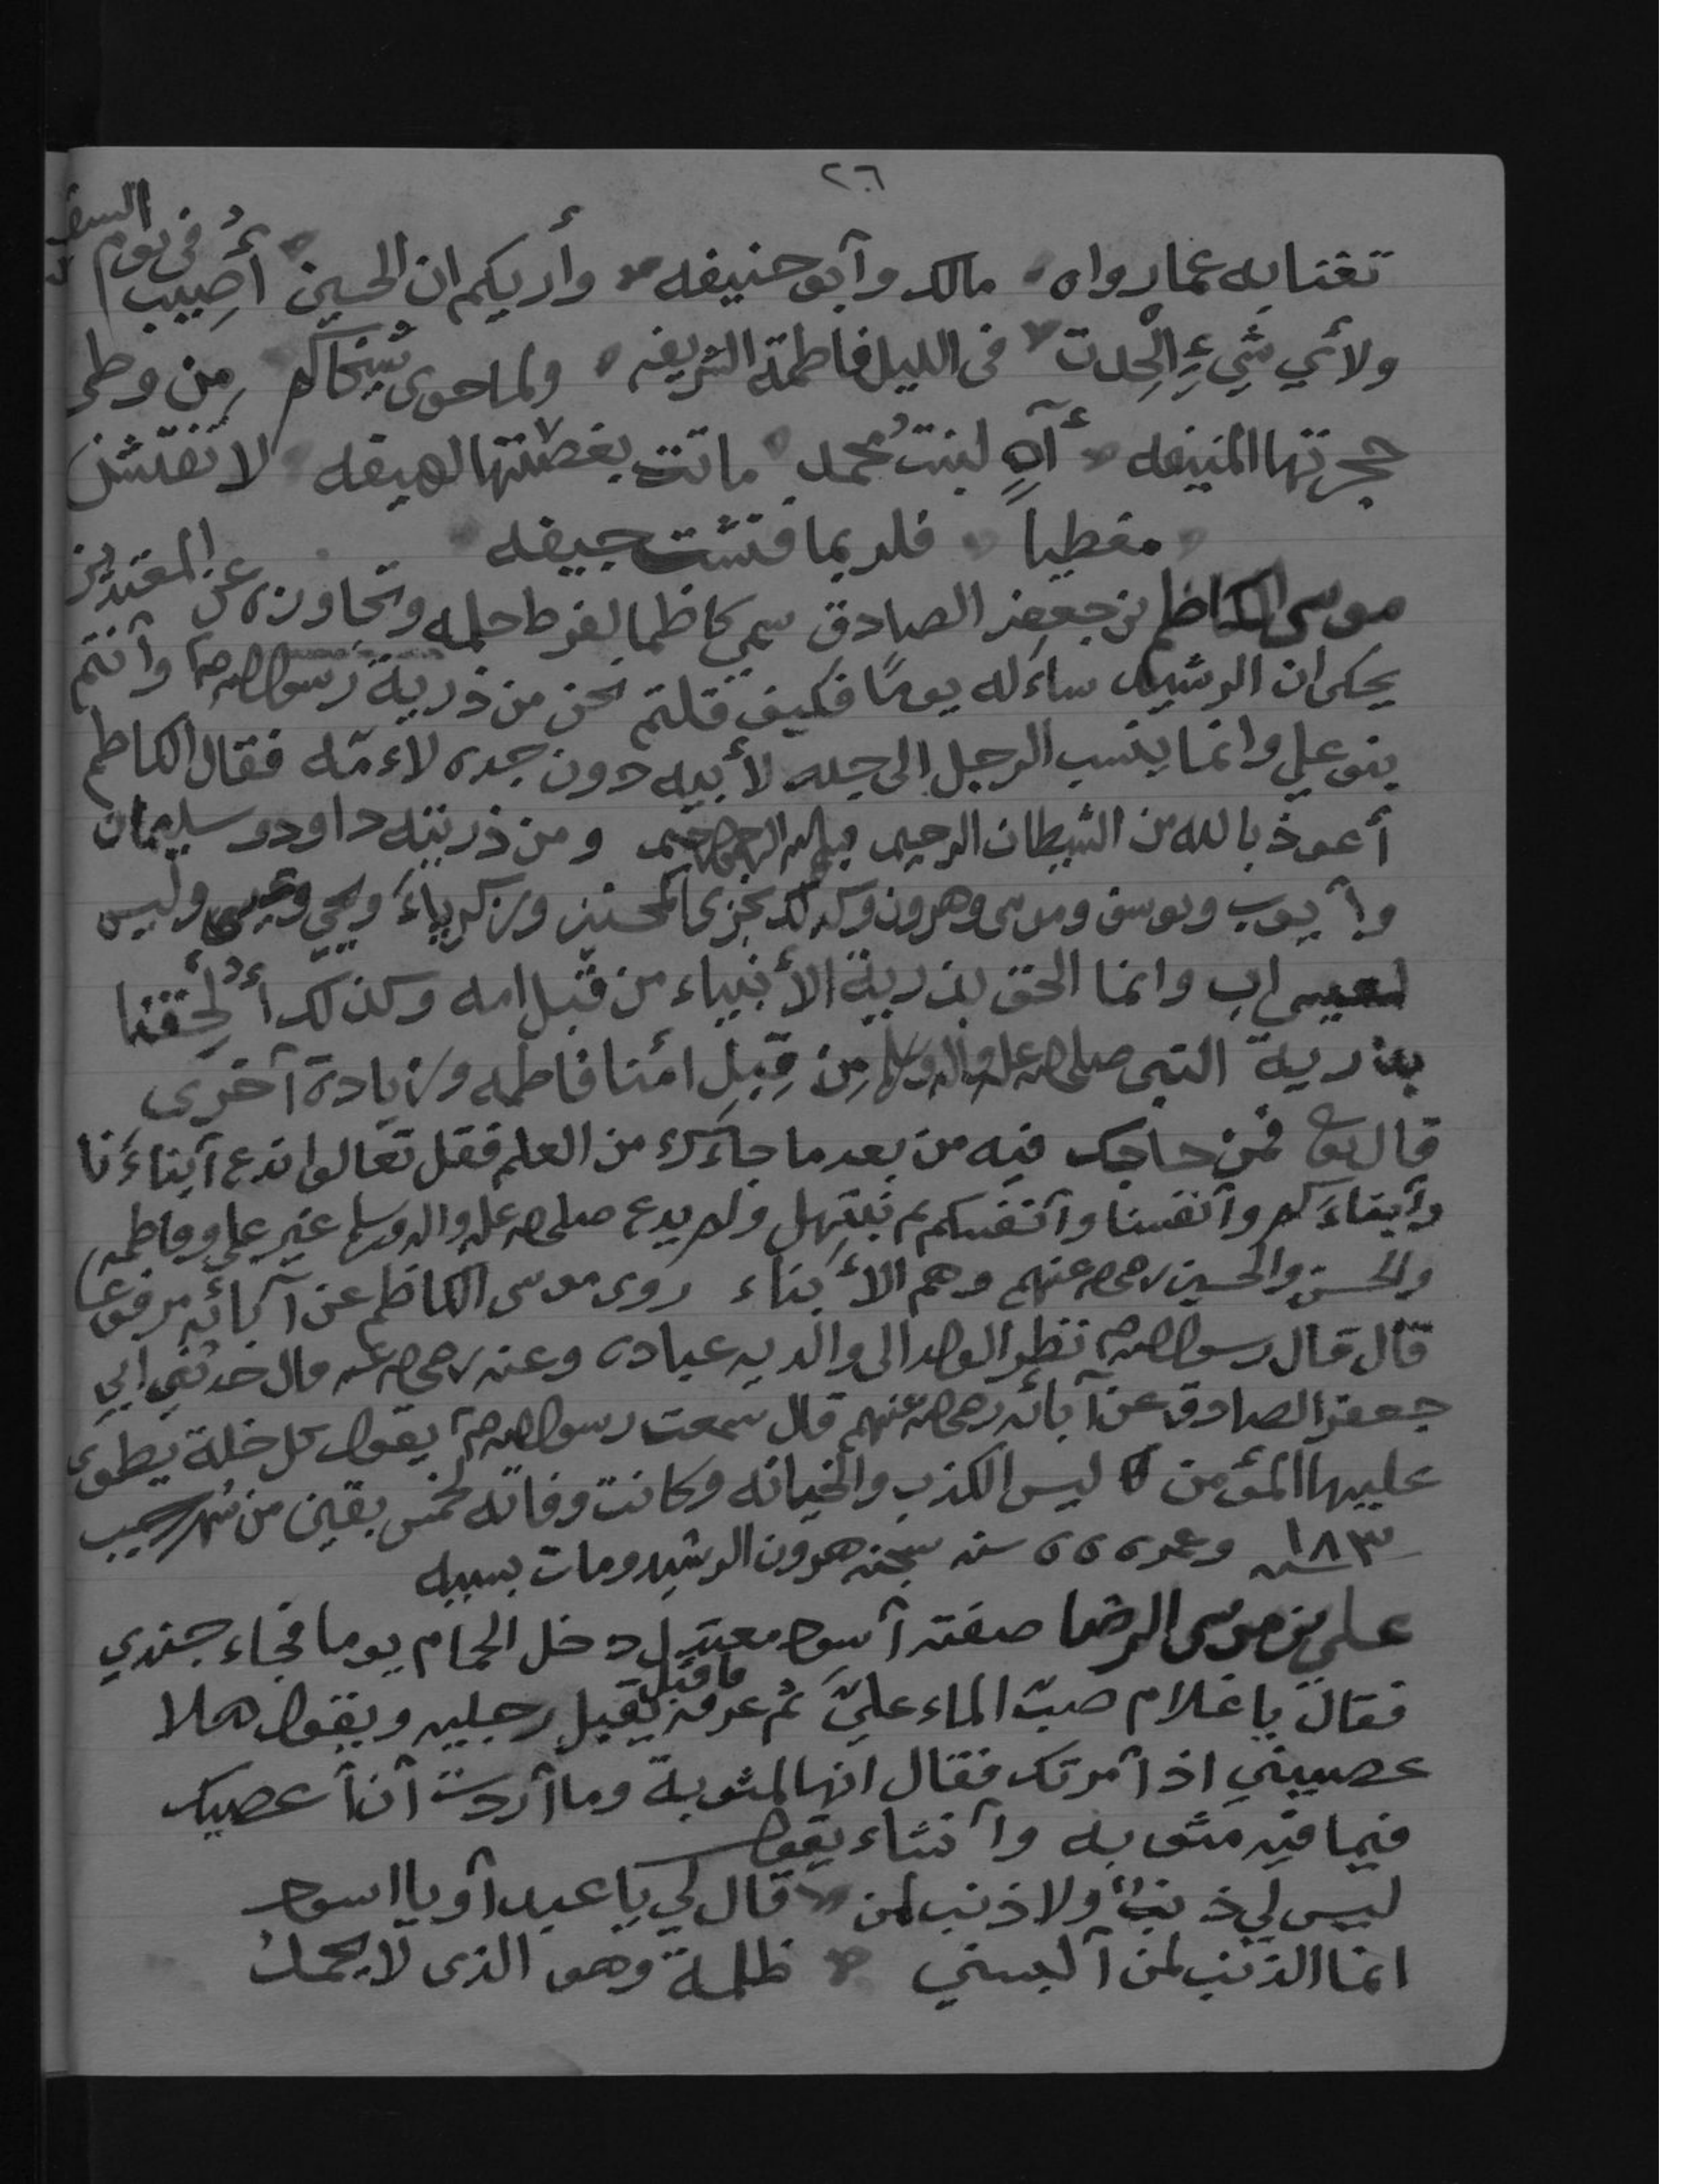 ٢٦
تغنا به عما رواه مالك وآبو حنيفه وأريكم ان الحسين أُصِيب في يوم السقيفه
ولأي شيءٍ أُلْحِدت في الليل فاطمة الشريفه ولما حوى شيخاكم من وطي
حجرتها المنيفه آهٍ لبنت محمد ماتت بغصتها لهيفه لا تفتشن
مغطياً فلربما فتشت جيفه
موسى الكاظم بن جعفر الصادق سمي كاظما لفرط حلمه وتجاوزه عن المعتدين
يحكى ان الرشيد ساءَله يومًا فكيف قلتم نحن من ذرية رسول الله صم وأنتم
بنو علي وانما ينسب الرجل الى جده لأبيه دون جده لاءمّه فقال الكاظم
أعوذ بالله من الشيطان الرجيم بسم الله الرحمن الرحيم ومن ذريته داود وسليمان
وأيوب ويوسف وموسى وهرون وكذلك نجزي المحسنين وزكرياءَ ويحيى وعيسى وليس
لعيسى اب وانما الحق بذرية الأنبياء من قبل امه وكذلك أُلحِقنا
بذرية النبى صلى الله عليه وآله وسلم مِن قِبَلِ امنا فاطمه وزيادة آخرى
قال تعا فمن حاجك فيه من بعد ما جاءَك من العلم فقل تعالوا ندع آبناءَنا
وأبناءَكم وآنفسنا وآنفسكم ثم نبتهل ولم يدع صلى الله عليه وآله وسلم غير علي وفاطمه
والحسن والحسين رضي الله عنهم وهم الأبناء روى موسى الكاظم عن آبائه مرفوعا
قال قال رسول الله صم نظر الولد الى والديه عباده وعنه رضي الله عنه قال حدثني ابي
جعفر الصادق عن آبائه رضي الله عنهم قال سمعت رسول الله صم يقول كل خلة يطوى
عليها المؤمن ليس الكذب والخيانه وكانت وفاته لخمس بقين من شهر رجب
سنه ١٨٣ وعمره ٥٥ سنه سجنه هرون الرشيد ومات بسببه
علي بن موسى الرضا صفته آسود معتدل دخل الحمام يوما فجاء جندي
فقال يا غلام صبّ الماء عليّ ثم عرفه فاقبل يقبل رجليه ويقول هلا
عصيتني اذ آمرتك فقال انها لمثوبة وما آردت آن أعصيك
فيما فيه مثوبه وآنشاء يقول
ليس لي ذنبٌ ولا ذنب لمن قال لي يا عبد آو يا اسود
انما الذنب لمن آلبسني ظلمة وهو الذى لا يحمد